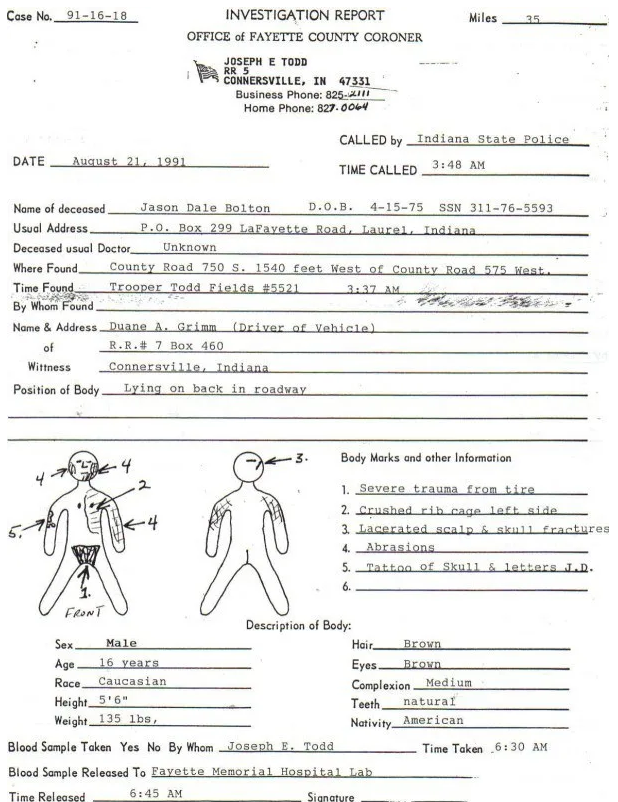 Case No. 91-16-18 INVESTIGATION REPORT Miles 35
OFFICE of FAYETTE COUNTY CORONER
JOSEPH E TODD
RR 5
CONNERSVILLE, IN 47331
Business Phone: 825-2111
Home Phone: 827-0064
CALLED by Indiana State Police
DATE August 21, 1991
TIME CALLED 3:48 AM
Name of deceased Jason Dale Bolton D.O.B. 4-15-75 SSN 311-76-5593
Usual Address P.O. Box 299 LaFayette Road, Laurel, Indiana
Deceased usual Doctor Unknown
Where Found County Road 750 S. 1540 feet West of County Road 575 West.
Time Found Trooper Todd Fields #5521 3:37 AM
By Whom Found
Name & Address Duane A. Grimm (Driver of Vehicle)
of R.R.# 7 Box 460
Wittness Connersville, Indiana
Position of Body Lying on back in roadway
Body Marks and other Information
1. Severe trauma from tire
2. Crushed rib cage left side
3. Lacerated scalp & skull fractures
4. Abrasions
5. Tattoo of Skull & letters J.D.
6.
4 4 2 4 5. 1. 3.
FRONT
Description of Body:
Sex Male Hair Brown
Age 16 years Eyes Brown
Race Caucasian Complexion Medium
Height 5'6" Teeth natural
Weight 135 lbs, Nativity American
Blood Sample Taken Yes No By Whom Joseph E. Todd Time Taken 6:30 AM
Blood Sample Released To Fayette Memorial Hospital Lab
Time Released 6:45 AM Signature